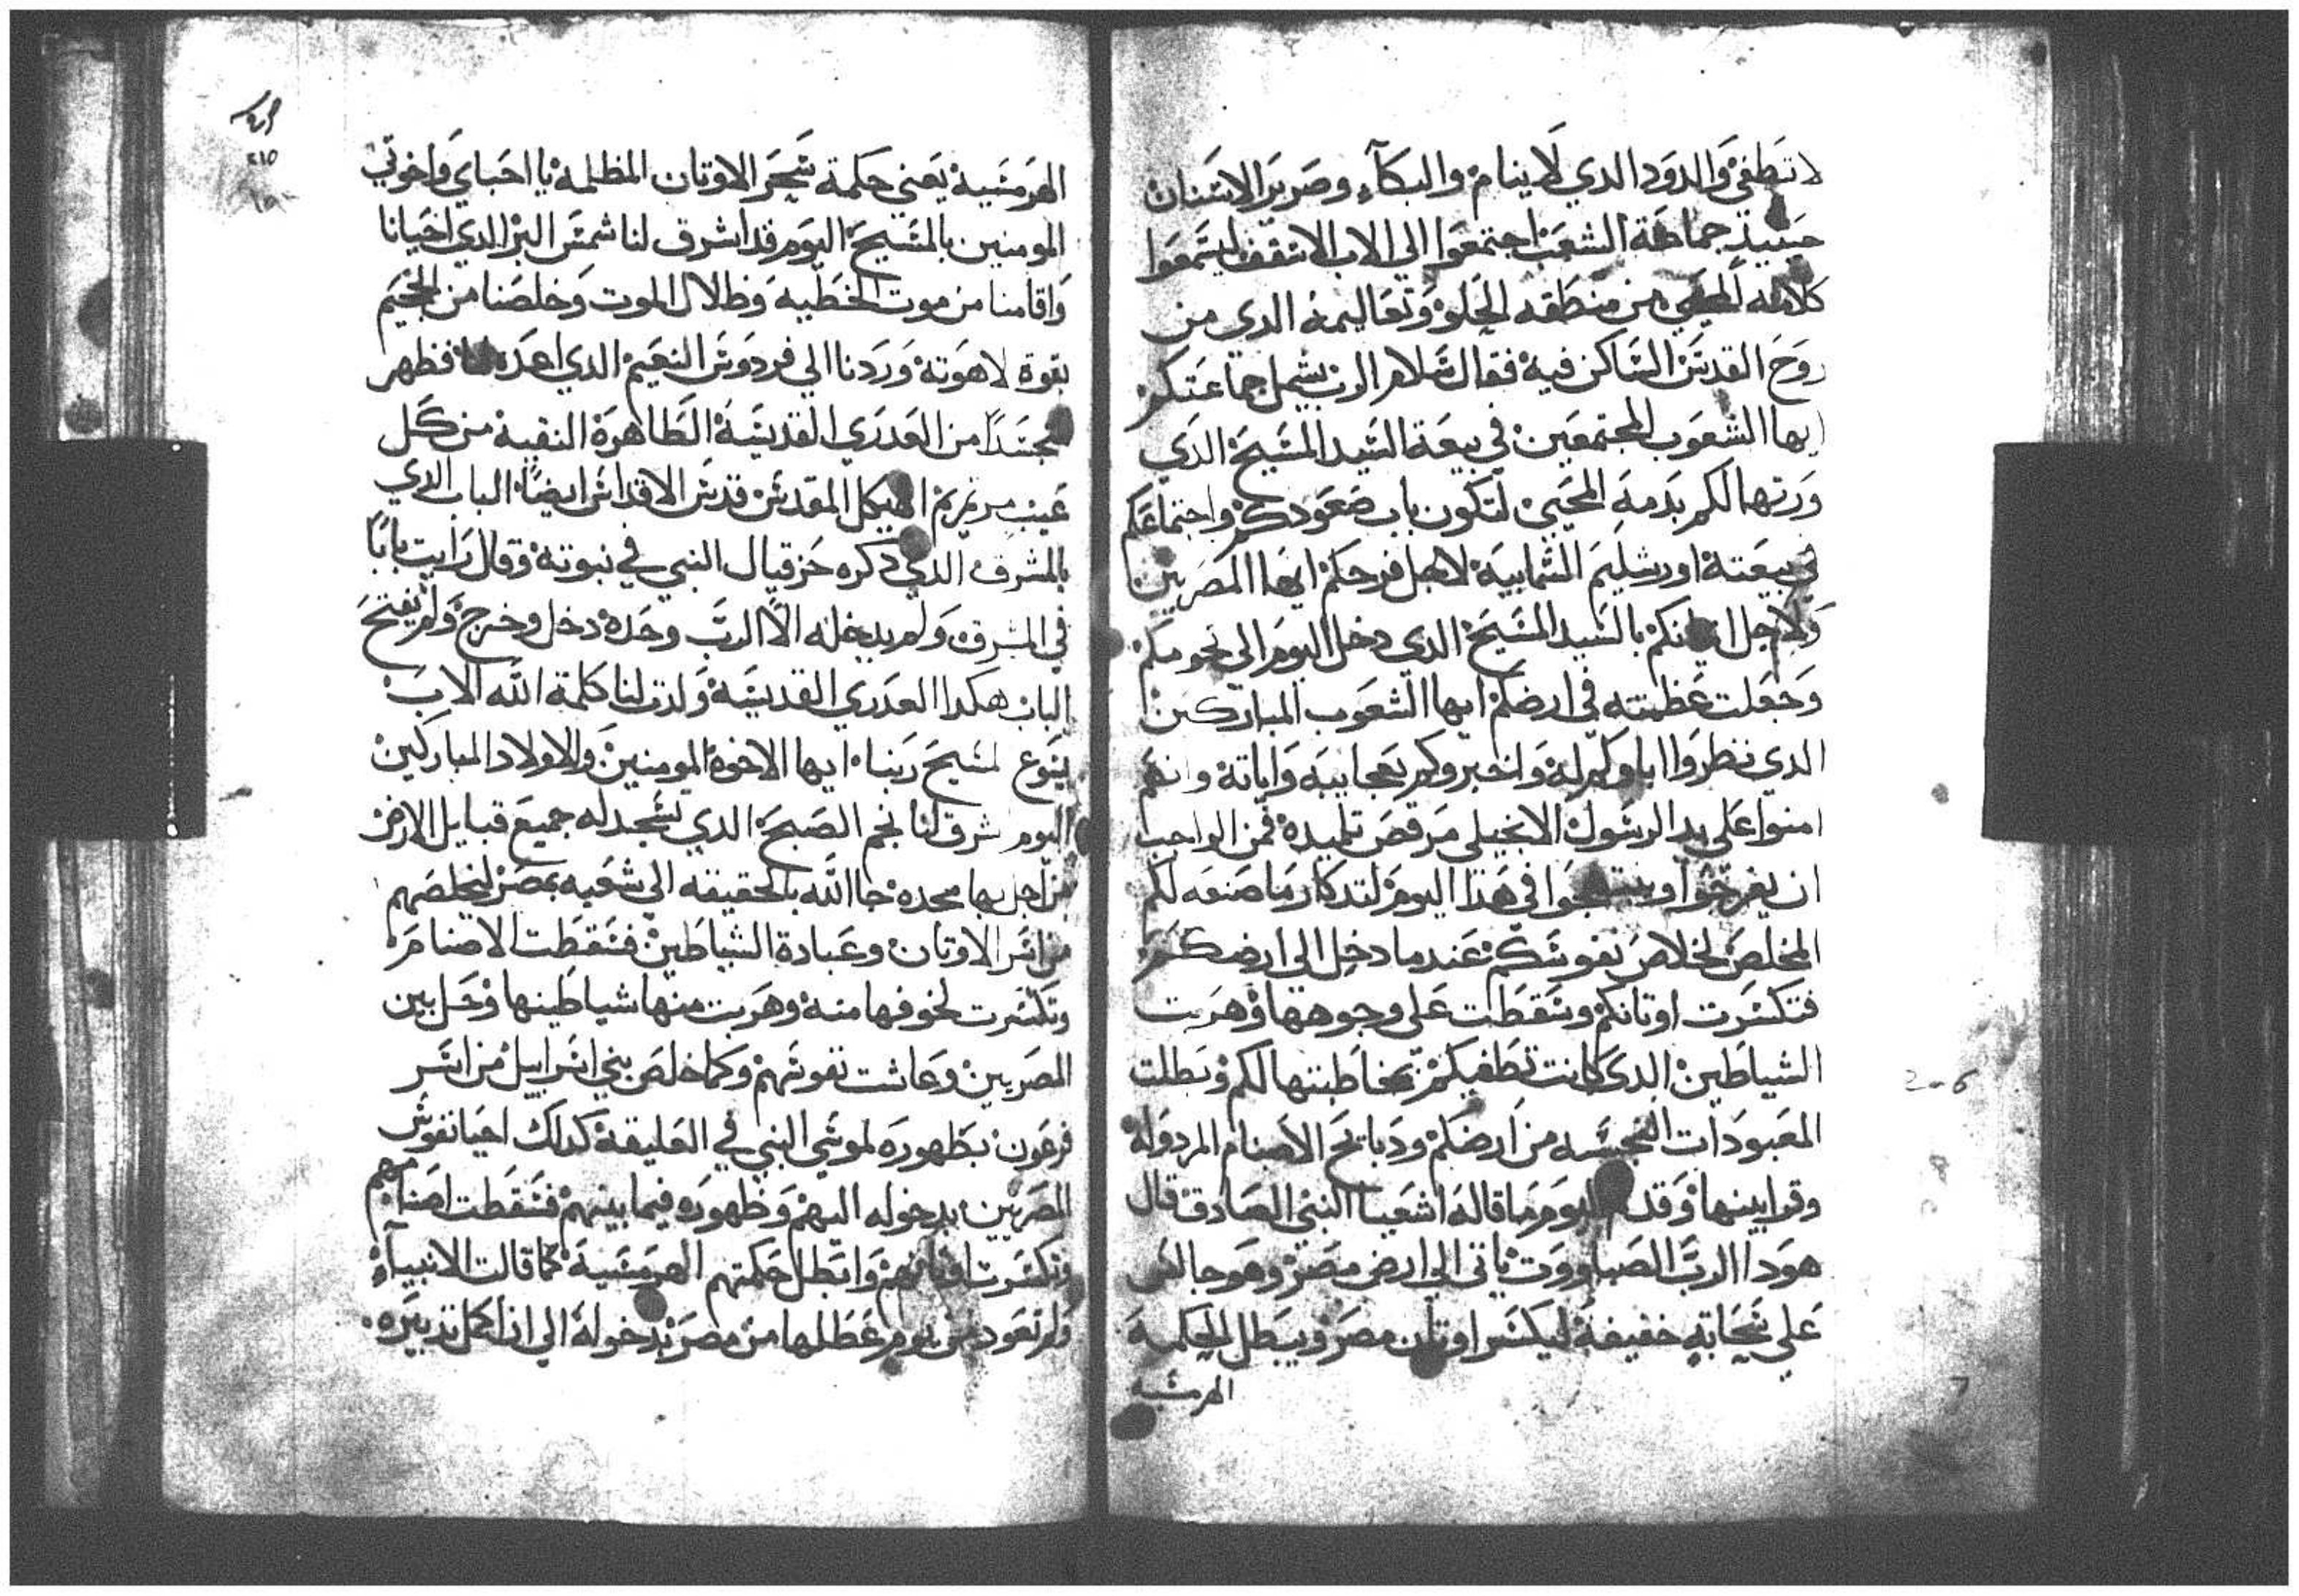 لا تطفئ والدود الدي لا ينام والبكآء وصرير الاسنان
حينيذ جماعة الشعب اجتمعوا الي الاب الاسقف ليسمعوا
كلامه المحيي من منطقه الحلو وتعاليمه الدي من
روح القدس الساكن فيه فقال سلام الرب يشمل جماعتكم
ايها الشعوب المجتمعين في بيعة السيد المسيح الدي
ورتها لكم بدمه المحيي لتكون باب صعودكم واجتماعكم
في بيعته اورشليم السمايية لاجل فرحكم ايها المصريين
ولاجل ايمانكم بالسيد المسيح الدي دخل اليوم الي نحومكم
وجعلت عظمته في ارضكم ايها الشعوب المباركين
الدي نظروا اباوكم له واخبروكم بعجايبه واياته وانهم
امنوا علي يد الرسول الانجيلي مرقص تلميده فمن الواجب
ان يفرحوا ويبتهجوا في هذا اليوم لتدكار ما صنعه لكم
المخلص لخلاص نفوسكم عندما دخل الي ارضكم
فتكسرت اوتانكم وسقطت علي وجوهها وهربت
الشياطين الدي كانت تطغيكم بمخاطبتها لكم وبطلت
المعبودات النجسه من ارضكم ودبايح الاصنام المردولة
وقرابينها وقد اليوم ما قاله اشعيا النبي الصادق قال
هودا الرب الصباووت ياتي الي ارض مصر وهو جالس
علي سحابة خفيفة ليكسر اوتان مصر ويبطل الحكمة
الهرمسيه
٢١٥
الهرمسية يعني حكمة سحر الاوتان المظلمة يا احباي واخوتي
المومنين بالمسيح اليوم قد اشرق لنا شمس البر الدي احيانا
واقامنا من موت الخطيه وظلال الموت وخلصنا من الجحيم
بقوة لاهوته وردنا الي فردوس النعيم الدي اعده لنا فظهر
متجسداً من العدري القديسة الطاهرة النقية من كل
عيب مرتمريم الهيكل المقدس قدس الاقداس ايضاً الباب الدي
بالمشرق الدي دكره حزقيال النبي في نبوته وقال رايت باباً
في المشرق ولم يدخله الا الرب وحده دخل وخرج ولم يفتح
الباب هكدا العدري القديسة ولدت لنا كلمة الله الاب
يسوع المسيح ربنا ايها الاخوة المومنين والاولاد المباركين
اليوم اشرق لنا نجم الصبح الدي تسجد له جميع قبايل الارض
من اجل بها مجده جا الله بالحقيقه الي شعبه بمصر ليخلصهم
من اسر الاوتان وعبادة الشياطين فسقطت الاصنام
وتكسرت لخوفها منه وهربت منها شياطينها وحل بين
المصريين وعاشت نفوسهم وكما خلص بني اسراييل من اسر
فرعون بظهوره لموسي النبي في العليقة كدلك احيا نفوس
المصريين بدخوله اليهم وظهوره فيما بينهم فسقطت اصنامهم
وتكسرت اوتانهم وابطل حكمتهم الهرمسية كما قالت الانبيآء
ولم تعود من يوم عطلها من مصر بدخوله الي ان اكمل تدبيره